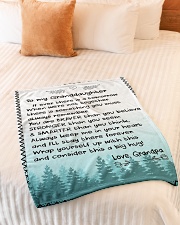 To my Granddaughter
If ever there is a tomorrow
when we're not together
there is something you must
always remember
You are BRAVER than you believe
STRONGER than you seem
& SMARTER than you think.
Always keep me in your heart
and I'll stay there forever
Wrap yourself up with this
and consider this a big hug!
Love, Grandpa